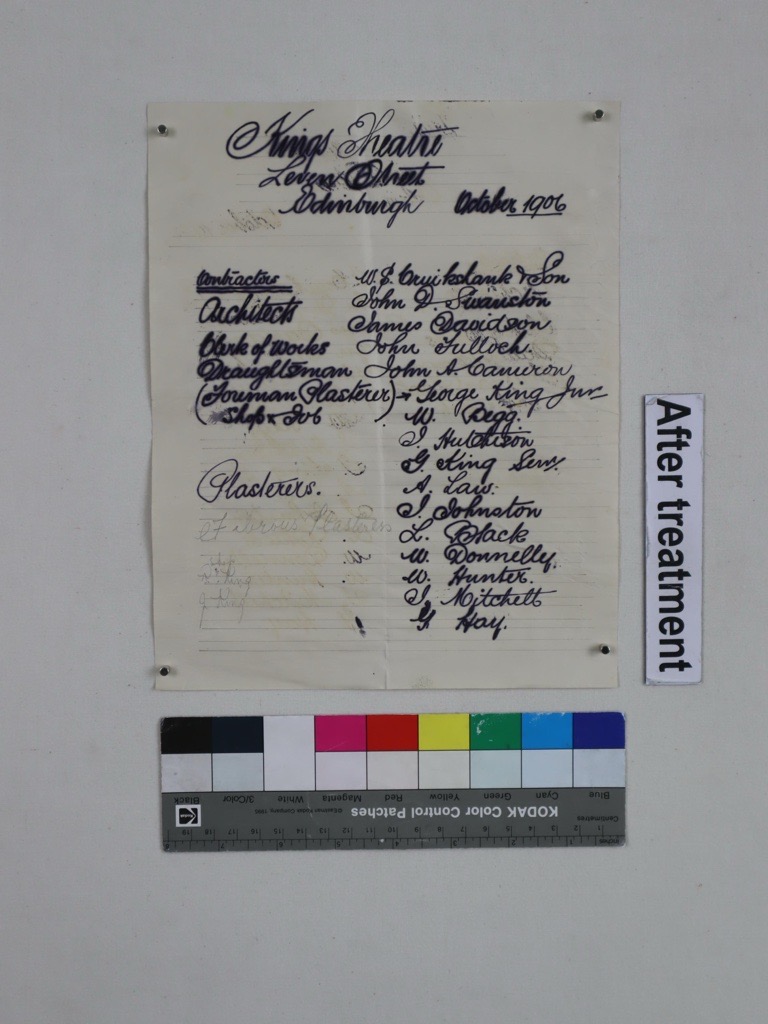 Kings Theatre
Leven Street
Edinburgh October 1906
Contractors W. S. Cruikshank & Son
Architects John D. Swanston
James Davidson
Clerk of Works John Tulloch.
Draughtsman John A Cameron
(Foreman Plasterer) George King Jun
( Shop & Job ) W. Begg.
J. Hutchison
G. King Senr.
Plasterers. A. Law.
J. Johnston
Plasterers L. Black
W. Donnelly.
W. Hunter.
J. Mitchell
G. Hay.
After treatment
Blue Cyan Green Yellow Red Magenta White 3/Color Black
KODAK Color Control Patches
Centimetres
inches